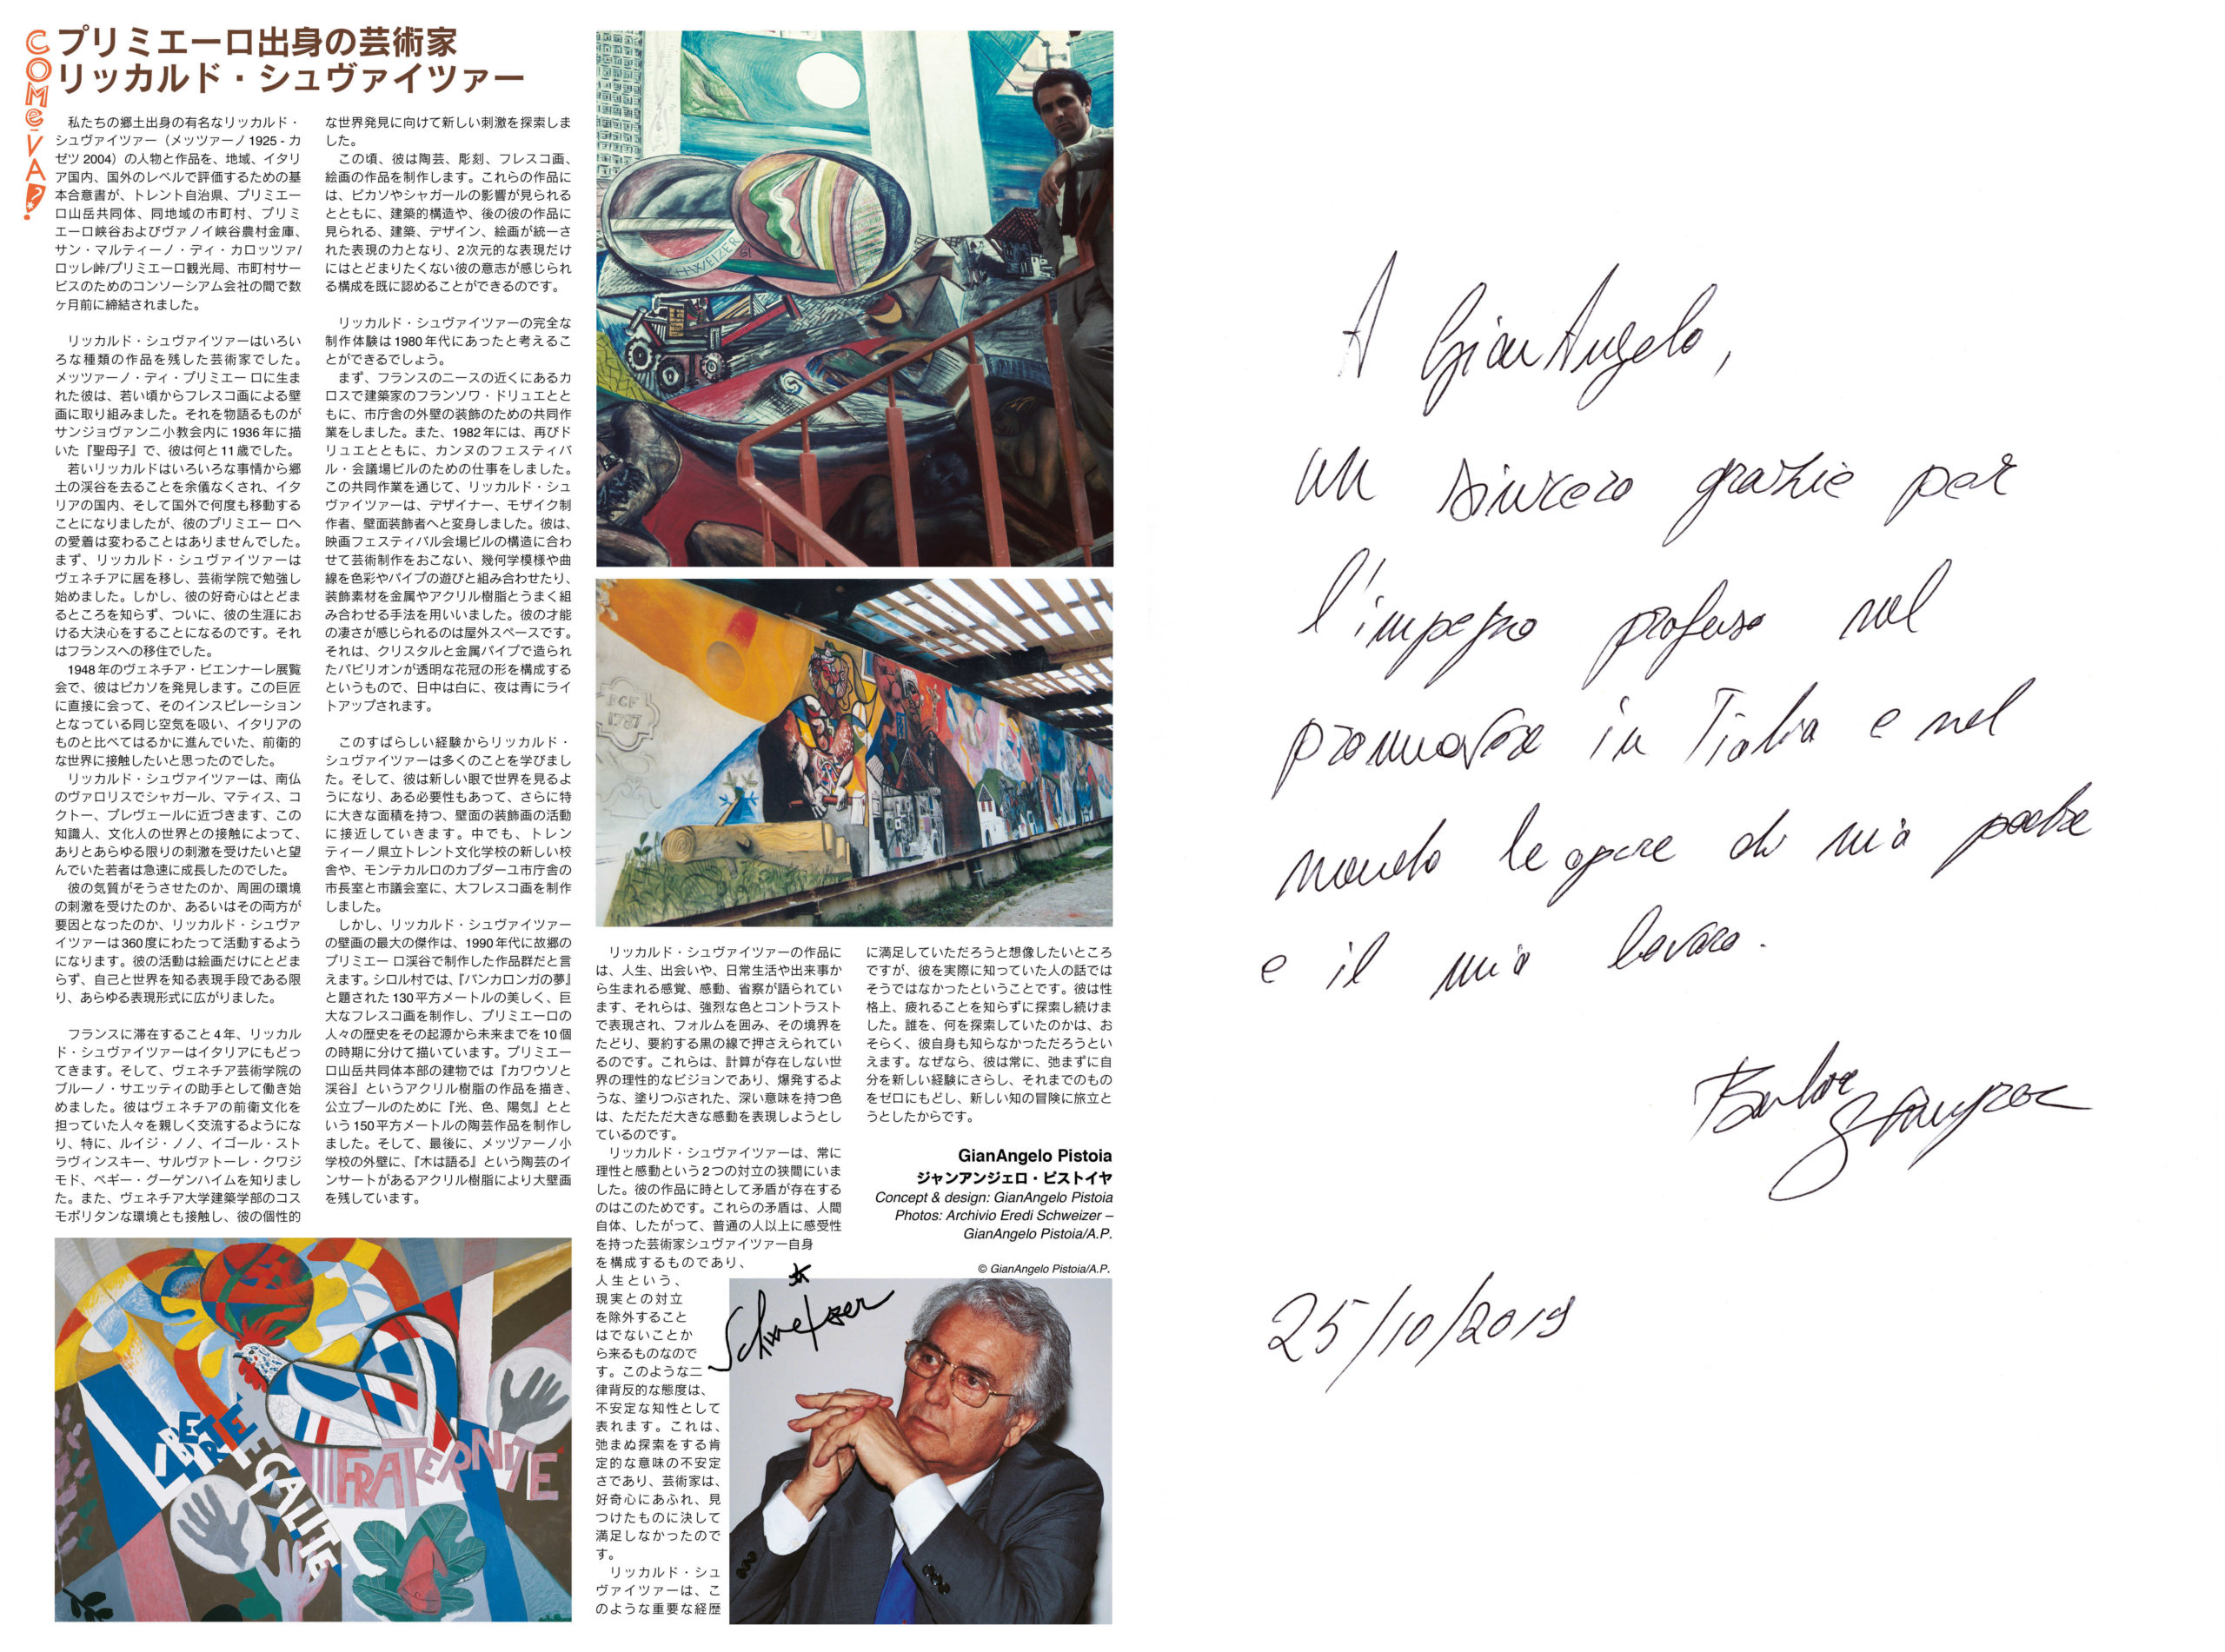 COMe-VA?
プリミエーロ出身の芸術家
リッカルド・シュヴァイツァー
私たちの郷土出身の有名なリッカルド・
シュヴァイツァー（メッツァーノ 1925 - カ
ゼツ 2004）の人物と作品を、地域、イタリ
ア国内、国外のレベルで評価するための基
本合意書が、トレント自治県、プリミエー
ロ山岳共同体、同地域の市町村、プリミ
エーロ峡谷およびヴァノイ峡谷農村金庫、
サン・マルティーノ・ディ・カロッツァ/
ロッレ峠/プリミエーロ観光局、市町村サー
ビスのためのコンソーシアム会社の間で数
ヶ月前に締結されました。
リッカルド・シュヴァイツァーはいろい
ろな種類の作品を残した芸術家でした。
メッツァーノ・ディ・プリミエー ロに生ま
れた彼は、若い頃からフレスコ画による壁
画に取り組みました。それを物語るものが
サンジョヴァンニ小教会内に 1936 年に描
いた『聖母子』で、彼は何と 11 歳でした。
若いリッカルドはいろいろな事情から郷
土の渓谷を去ることを余儀なくされ、イタ
リアの国内、そして国外で何度も移動する
ことになりましたが、彼のプリミエー ロへ
の愛着は変わることはありませんでした。
まず、リッカルド・シュヴァイツァーは
ヴェネチアに居を移し、芸術学院で勉強し
始めました。しかし、彼の好奇心はとどま
るところを知らず、ついに、彼の生涯にお
ける大決心をすることになるのです。それ
はフランスへの移住でした。
1948 年のヴェネチア・ビエンナーレ展覧
会で、彼はピカソを発見します。この巨匠
に直接に会って、そのインスピレーション
となっている同じ空気を吸い、イタリアの
ものと比べてはるかに進んでいた、前衛的
な世界に接触したいと思ったのでした。
リッカルド・シュヴァイツァーは、南仏
のヴァロリスでシャガール、マティス、コ
クトー、プレヴェールに近づきます、この
知識人、文化人の世界との接触によって、
ありとあらゆる限りの刺激を受けたいと望
んでいた若者は急速に成長したのでした。
彼の気質がそうさせたのか、周囲の環境
の刺激を受けたのか、あるいはその両方が
要因となったのか、リッカルド・シュヴァ
イツァーは 360 度にわたって活動するよう
になります。彼の活動は絵画だけにとどま
らず、自己と世界を知る表現手段である限
り、あらゆる表現形式に広がりました。
フランスに滞在すること 4 年、リッカル
ド・シュヴァイツァーはイタリアにもどっ
てきます。そして、ヴェネチア芸術学院の
ブルーノ・サエッティの助手として働き始
めました。彼はヴェネチアの前衛文化を
担っていた人々を親しく交流するようにな
り、特に、ルイジ・ノノ、イゴール・スト
ラヴィンスキー、サルヴァトーレ・クワジ
モド、ペギー・グーゲンハイムを知りまし
た。また、ヴェネチア大学建築学部のコス
モポリタンな環境とも接触し、彼の個性的
な世界発見に向けて新しい刺激を探索しま
した。
この頃、彼は陶芸、彫刻、フレスコ画、
絵画の作品を制作します。これらの作品に
は、ピカソやシャガールの影響が見られる
とともに、建築的構造や、後の彼の作品に
見られる、建築、デザイン、絵画が統一さ
れた表現の力となり、2次元的な表現だけ
にはとどまりたくない彼の意志が感じられ
る構成を既に認めることができるのです。
リッカルド・シュヴァイツァーの完全な
制作体験は 1980 年代にあったと考えるこ
とができるでしょう。
まず、フランスのニースの近くにあるカ
ロスで建築家のフランソワ・ドリュエとと
もに、市庁舎の外壁の装飾のための共同作
業をしました。また、1982 年には、再びド
リュエとともに、カンヌのフェスティバ
ル・会議場ビルのための仕事をしました。
この共同作業を通じて、リッカルド・シュ
ヴァイツァーは、デザイナー、モザイク制
作者、壁面装飾者へと変身しました。彼は、
映画フェスティバル会場ビルの構造に合わ
せて芸術制作をおこない、幾何学模様や曲
線を色彩やパイプの遊びと組み合わせたり、
装飾素材を金属やアクリル樹脂とうまく組
み合わせる手法を用いいました。彼の才能
の凄さが感じられるのは屋外スペースです。
それは、クリスタルと金属パイプで造られ
たパビリオンが透明な花冠の形を構成する
というもので、日中は白に、夜は青にライ
トアップされます。
このすばらしい経験からリッカルド・
シュヴァイツァーは多くのことを学びまし
た。そして、彼は新しい眼で世界を見るよ
うになり、ある必要性もあって、さらに特
に大きな面積を持つ、壁面の装飾画の活動
に接近していきます。中でも、トレン
ティーノ県立トレント文化学校の新しい校
舎や、モンテカルロのカプダーユ市庁舎の
市長室と市議会室に、大フレスコ画を制作
しました。
しかし、リッカルド・シュヴァイツァー
の壁画の最大の傑作は、1990 年代に故郷の
プリミエー ロ渓谷で制作した作品群だと言
えます。シロル村では、『バンカロンガの夢』
と題された 130 平方メートルの美しく、巨
大なフレスコ画を制作し、プリミエーロの
人々の歴史をその起源から未来までを 10 個
の時期に分けて描いています。プリミエー
ロ山岳共同体本部の建物では『カワウソと
渓谷』というアクリル樹脂の作品を描き、
公立プールのために『光、色、陽気』とと
いう 150 平方メートルの陶芸作品を制作し
ました。そして、最後に、メッヅァーノ小
学校の外壁に、『木は語る』という陶芸のイ
ンサートがあるアクリル樹脂により大壁画
を残しています。
SCHWEIZER
BCF
1787
リッカルド・シュヴァイツァーの作品に
は、人生、出会いや、日常生活や出来事か
ら生まれる感覚、感動、省察が語られてい
ます、それらは、強烈な色とコントラスト
で表現され、フォルムを囲み、その境界を
たどり、要約する黒の線で押さえられてい
るのです。これらは、計算が存在しない世
界の理性的なビジョンであり、爆発するよ
うな、塗りつぶされた、深い意味を持つ色
は、ただただ大きな感動を表現しようとし
ているのです。
リッカルド・シュヴァイツァーは、常に
理性と感動という 2 つの対立の狭間にいま
した。彼の作品に時として矛盾が存在する
のはこのためです。これらの矛盾は、人間
自体、したがって、普通の人以上に感受性
を持った芸術家シュヴァイツァー自身
を構成するものであり、
人生という、
現実との対立
を除外すること
はでないことか
ら来るものなので
す。このような二
律背反的な態度は、
不安定な知性として
表れます。これは、
弛まぬ探索をする肯
定的な意味の不安定
さであり、芸術家は、
好奇心にあふれ、見
つけたものに決して
満足しなかったので
す。
リッカルド・シュ
ヴァイツァーは、こ
のような重要な経歴
に満足していただろうと想像したいところ
ですが、彼を実際に知っていた人の話では
そうではなかったということです。彼は性
格上、疲れることを知らずに探索し続けま
した。誰を、何を探索していたのかは、お
そらく、彼自身も知らなかっただろうとい
えます。なぜなら、彼は常に、弛まずに自
分を新しい経験にさらし、それまでのもの
をゼロにもどし、新しい知の冒険に旅立と
うとしたからです。
GianAngelo Pistoia
ジャンアンジェロ・ピストイヤ
Concept & design: GianAngelo Pistoia
Photos: Archivio Eredi Schweizer –
GianAngelo Pistoia/A.P.
© GianAngelo Pistoia/A.P.
Schweizer
LIBERTE
EGALITE
FRATERNITE
A GianAngelo,
un sincero grazie per
l'impegno profuso nel
promuovere in Italia e nel
mondo le opere di mio padre
e il mio lavoro.
25/10/2019